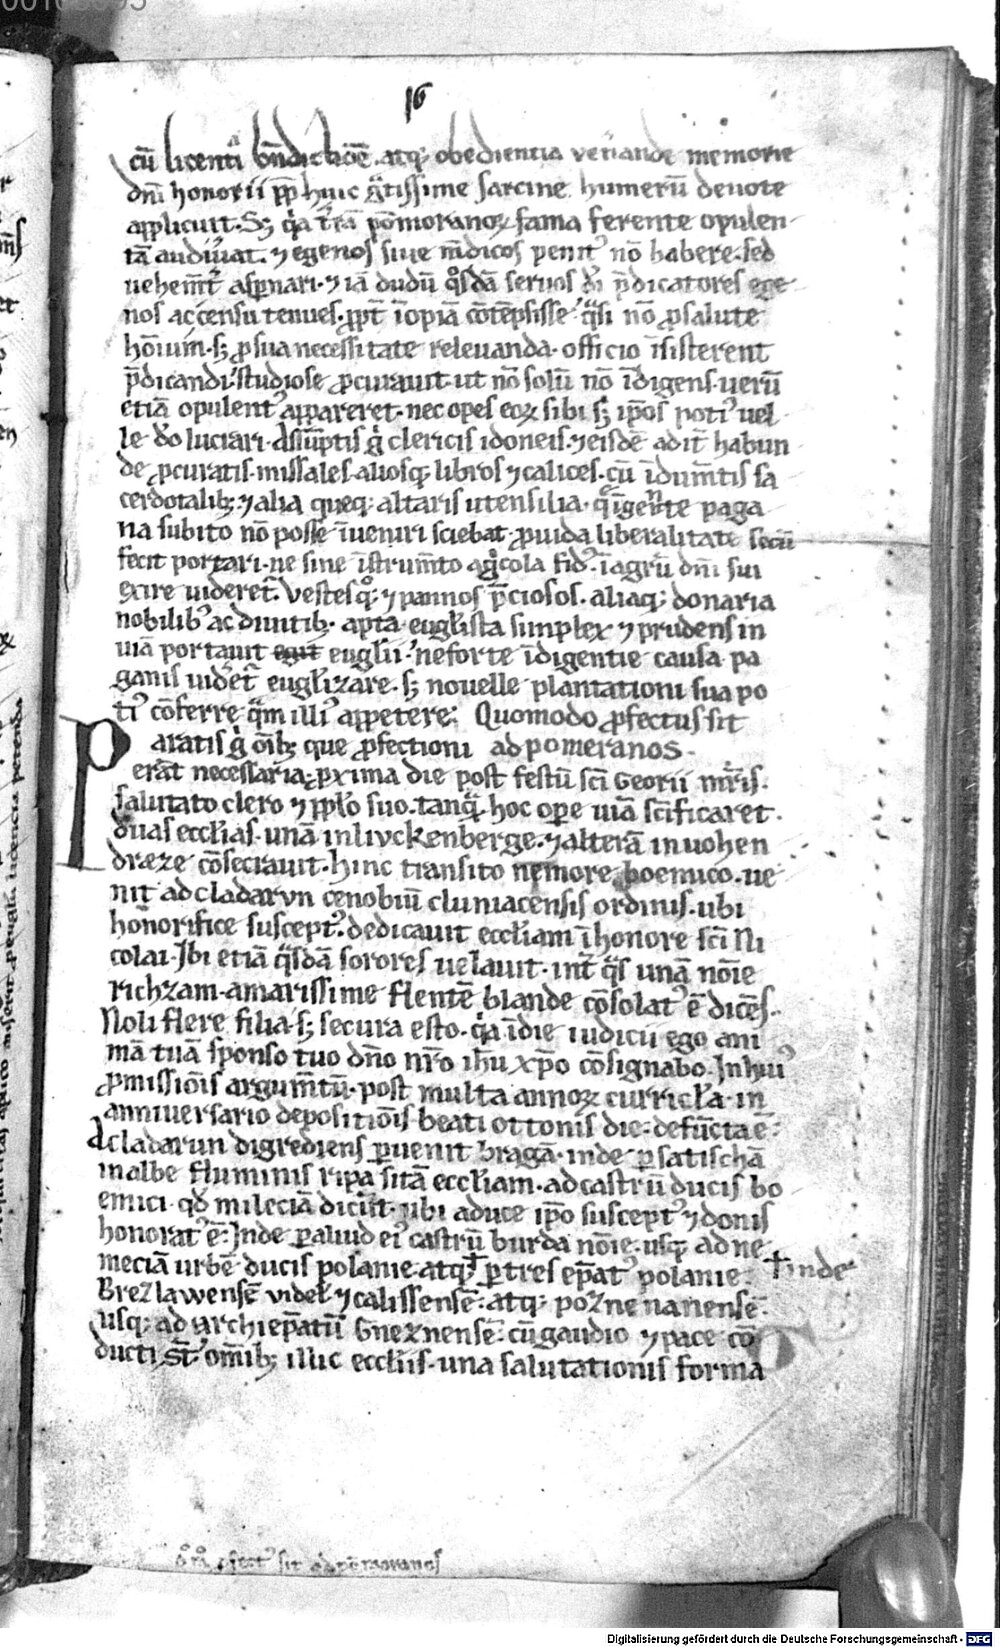 16
cū licentia bn̄dictiōe atq; obedientia ven̄ande memorie
dn̄i honorii pp̄ huic gͣtissime sarcine humerū deuote
applicuit. Sꝫ qͥa t̄rā pom̄oranoꝝ fama ferente opulen
tā audiuͣat. ⁊ egenos siue mͤdicos penitꝰ nō habere. sed
uehem̄tͬ asp̄nari. ⁊ iā dudū qͦsdā seruos di p̄dicatores ege
nos ac censu tenues. ꝓpt̄ īopiā cōtēpsisse. qͣsi nō ꝓ salute
hoīum. sꝫ ꝓ sua necessitate releuanda. officio īsisterent
p̄dicandi. studiose ꝓcurauit. ut nō solū nō īdigens. uerū
etiā opulentꝰ appareret. nec opes eoꝝ sibi sꝫ ip̄os potiꝰ uel
le dō lucrari. Assūptis gͦ clericis idoneis. ⁊ eisdē ad it̄ habun
de ꝓcuratis. missales aliosq; libros ⁊ calices. cū īdum̄tis sa
cerdotalibꝫ. ⁊ alia queq; altaris utensilia. q̄ īgente paga
na subito nō posse īueniri sciebat. ꝓuida liberalitate secū
fecit portari. ne sine īstrum̄to agͥcola fidꝰ. ī agrū dn̄i sui
exire uideret̄. Vestesqͦ; ⁊ pannos p̄ciosos. aliaq; donaria
nobilibꝰ ac diuitibꝫ. apta. eugl̄ista simplex ⁊ prudens in
uiā portauit egit eugl̄ii. ne forte īdigentie causa pa
ganis uidͤet̄ eugl̄izare. sꝫ nouelle plantationi sua po
tiꝰ cōferre qͣm illiꝰ appetere: Quomodo ꝓfectus sit
Paratis gͦ oīb; que ꝓfectioni ad pomeranos.
erāt necessaria. ꝓxima die post festū sc̄i Georii mr̄is.
salutato clero ⁊ pp̄lo suo. tanqͣ hoc ope uiā sc̄ificaret.
duas ecclīas. unā in livckenberge. ⁊ alterā in uohen
draze cōsecrauit. hinc transito nemore boemico. ue
nit ad cladarvn cenobiū cluniacensis ordinis. ubi
honorifice susceptꝰ. dedicauit eccl̄iam ī honore sc̄i Ni
colai. Ibi etiā qͣsdā sorores uelauit. int̄ qͣs unā noīe
richzam. amarissime flentē blande cōsolatꝰ ē dicēs.
Noli flere filia. sꝫ secura esto. qͥa ī die iudicii ego ani
mā tuā sponso tuo dn̄o nr̄o ih̄u xp̄o cōsignabo. In huiꝰ
ꝓmissiōis argum̄tū. post multa annoꝝ curricl̄a. in
anniuersario depositiōis beati ottonis die. defūcta ē.
A cladarun digrediens ꝑuenit bragā. inde ꝑ satischā
in albe fluminis ripa sitā eccl̄iam. ad castrū ducis bo
emici. qd̄ mileciā dicīt. ubi a duce ip̄o susceptꝰ ⁊ donis
honoratꝰ ē. Inde ꝑ aliud eiꝰ castrū burda noīe. usq; ad ne
meciā urbē ducis polanie. atq; † ꝑ tres ep̄atꝰ polanie. † inde
Brezlawensē videl̄ ⁊ calissensē. atq; poznenanensē.
usq; ad archiep̄atū Gneznensē. cū gaudio ⁊ pace cō
ducti st̄. omībꝫ illic eccl̄iis. una salutationis forma
ꝓfectꝰ sit ad pomoranos
Digitalisierung gefördert durch die Deutsche Forschungsgemeinschaft - DFG